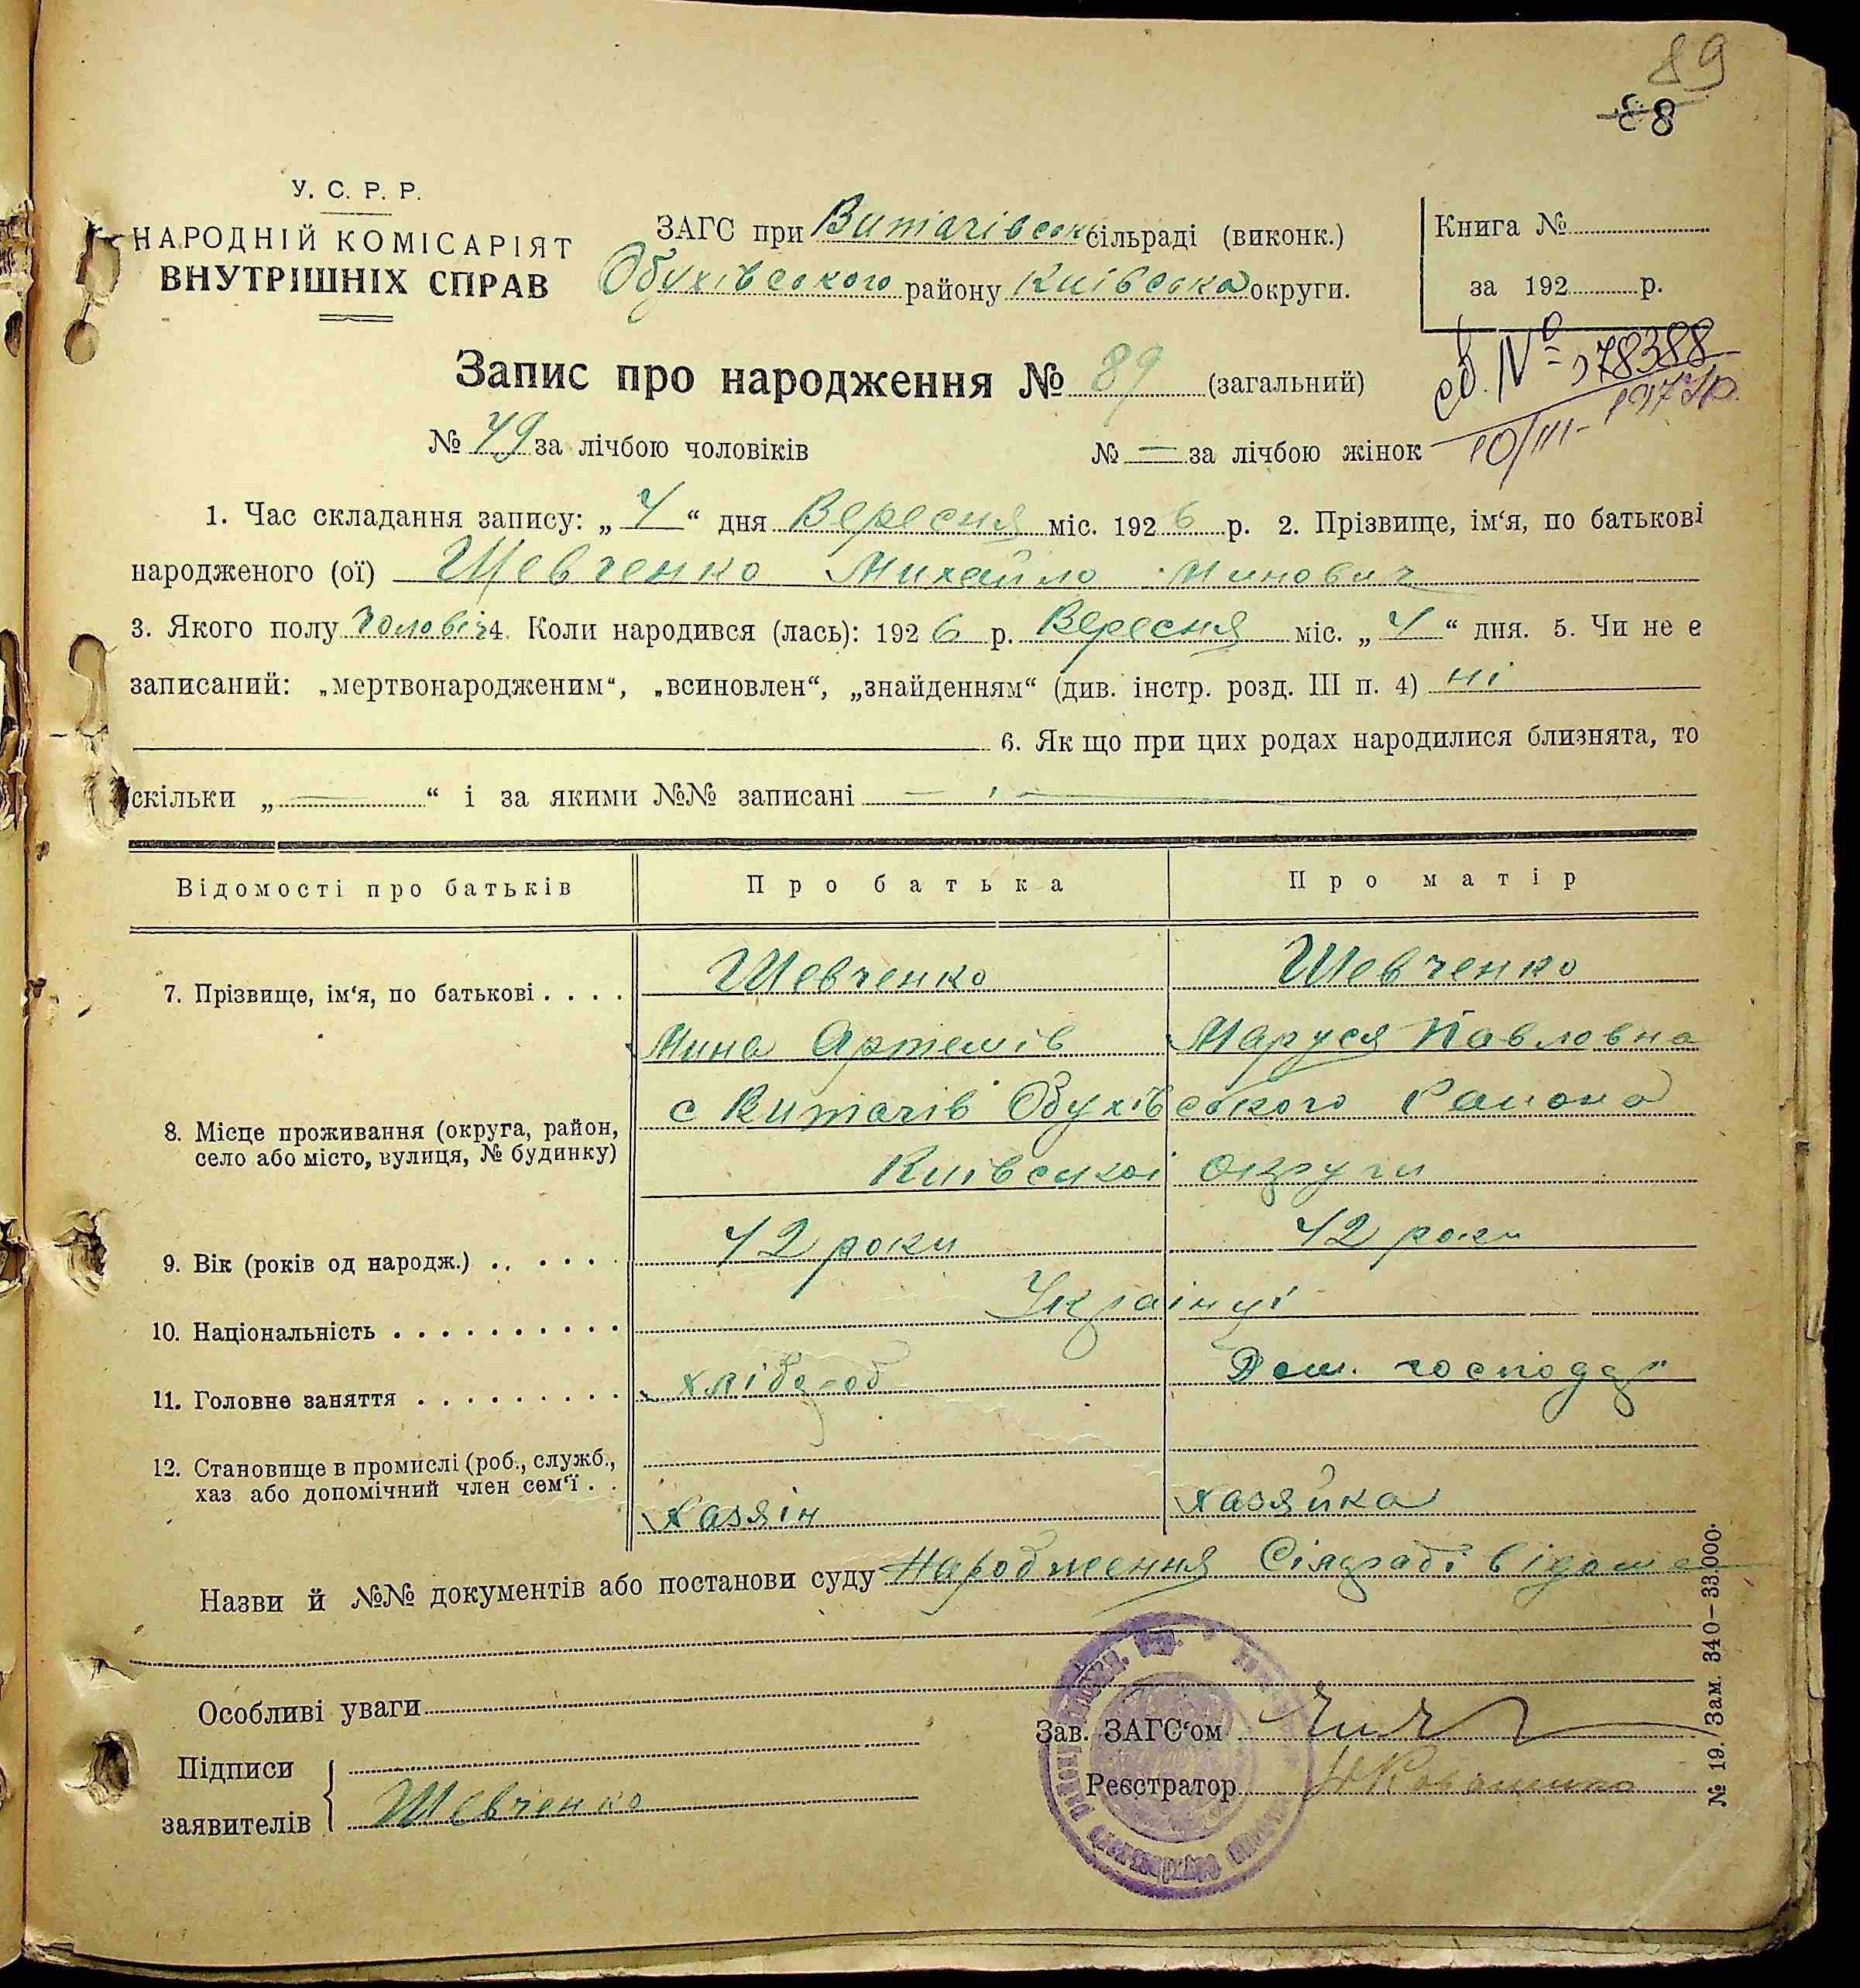 89
88
У. С. Р. Р.
НАРОДНІЙ КОМІСАРІЯТ
ВНУТРІШНІХ СПРАВ
ЗАГС при Витачівськ сільраді (виконк.)
Обухівського району Київська округи.
Книга №
за 192 р.
Запис про народження № 89 (загальний)
№ 49 за лічбою чоловіків № — за лічбою жінок
10/III-
1. Час складання запису: „ 4 “ дня Вересня міс. 192 6 р. 2. Прізвище, ім‘я, по батькові
народженого (ої) Шевченко Михайло Минович
3. Якого полу Чоловіч 4. Коли народився (лась): 192 6 р. Вересня міс. „ 4 “ дня. 5. Чи не є
записаний: „мертвонародженим“, „всиновлен“, „знайденням“ (див. інстр. розд. III п. 4) ні
6. Як що при цих родах народилися близнята, то
скільки „ — “ і за якими №№ записані —
Відомості про батьків Про батька Про матір
7. Прізвище, ім‘я, по батькові . . . . Шевченко Шевченко
Мина Артемів Маруся Павловна
8. Місце проживання (округа, район, с Витачів Обухівського Района
село або місто, вулиця, № будинку) Київської округи
9. Вік (років од народж.) . . . . . . 42 роки 42 роки
10. Національність . . . . . . . . . . Українці
11. Головне заняття . . . . . . . . хлібороб Дом. господар
12. Становище в промислі (роб., служб.,
хаз або допомічний член сем‘ї . . Хазяін хазяйка
Назви й №№ документів або постанови суду Народження Сільраді відоме
Особливі уваги
Зав. ЗАГС‘ом
Підписи
заявителів Шевченко
Реєстратор
№ 19. Зам. 340–33.000.